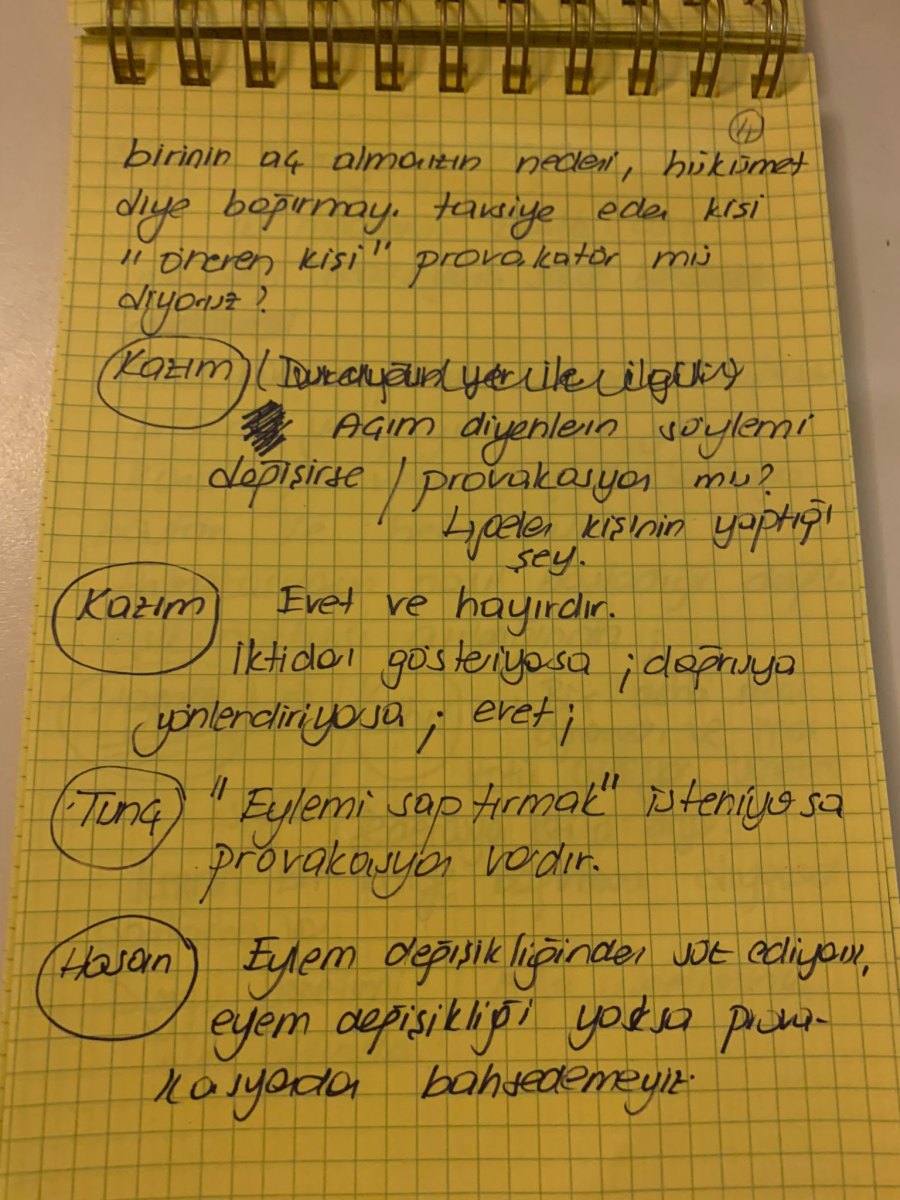 4
birinin aç almaızın nedeni, hükümet
diye bağırmay. tavsiye eden kişi
"öneren kişi" provakatör mü
diyoruz?
Kazım (
Açım diyenlerin söylemi
değişirse / provakasyon mu?
kişinin yaptığı
şey.
Kazım Evet ve hayırdır.
iktidarı gösteriyosa ; doğruya
yönlendiriyosa ; evet ;
Tunç "Eylemi saptırmak" isteniyosa
provakasyon vardır.
Hasan Eylem değişikliğinden söz ediyoruz,
eyem değişikliği yoksa prova-
kasyondan bahsedemeyiz.